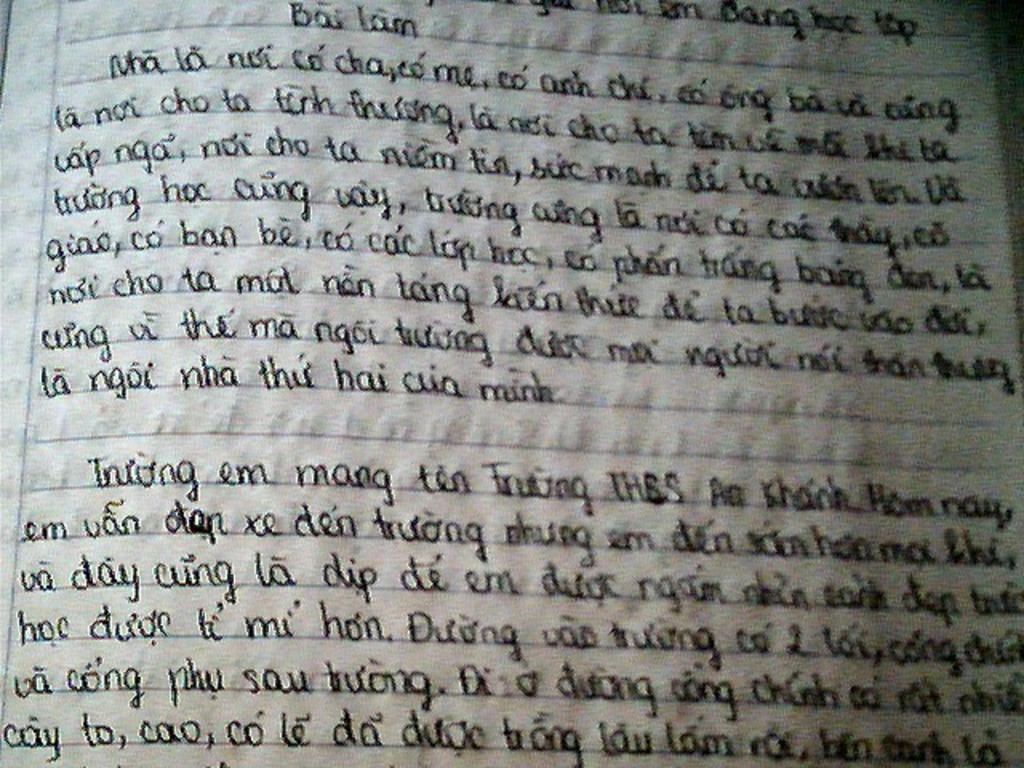 em đang học lớp
Bài làm
Nhà là nơi có cha, có mẹ, có anh chị, có ông bà và cũng
là nơi cho ta tình thương, là nơi cho ta tìm về mỗi khi ta
vấp ngã, nơi cho ta niềm tin, sức mạnh để ta vươn lên. Và
trường học cũng vậy, trường cũng là nơi có các thầy, cô
giáo, có bạn bè, có các lớp học, có phấn trắng bảng đen, là
nơi cho ta một nền tảng kiến thức để ta bước vào đời,
cũng vì thế mà ngôi trường được mọi người nói trân trọng
là ngôi nhà thứ hai của mình
Trường em mang tên Trường THCS An Khánh. Hôm nay,
em vẫn đạp xe đến trường nhưng em đến sớm hơn mọi khi,
và đây cũng là dịp để em được ngắm nhìn cảnh đẹp
học được tỉ mỉ hơn. Đường vào trường có 2 lối, cổng chính
và cổng phụ sau trường. Đi ở đường cổng chính có rất nhiều
cây to, cao, có lẽ đã được trồng lâu lắm rồi, bên cạnh là